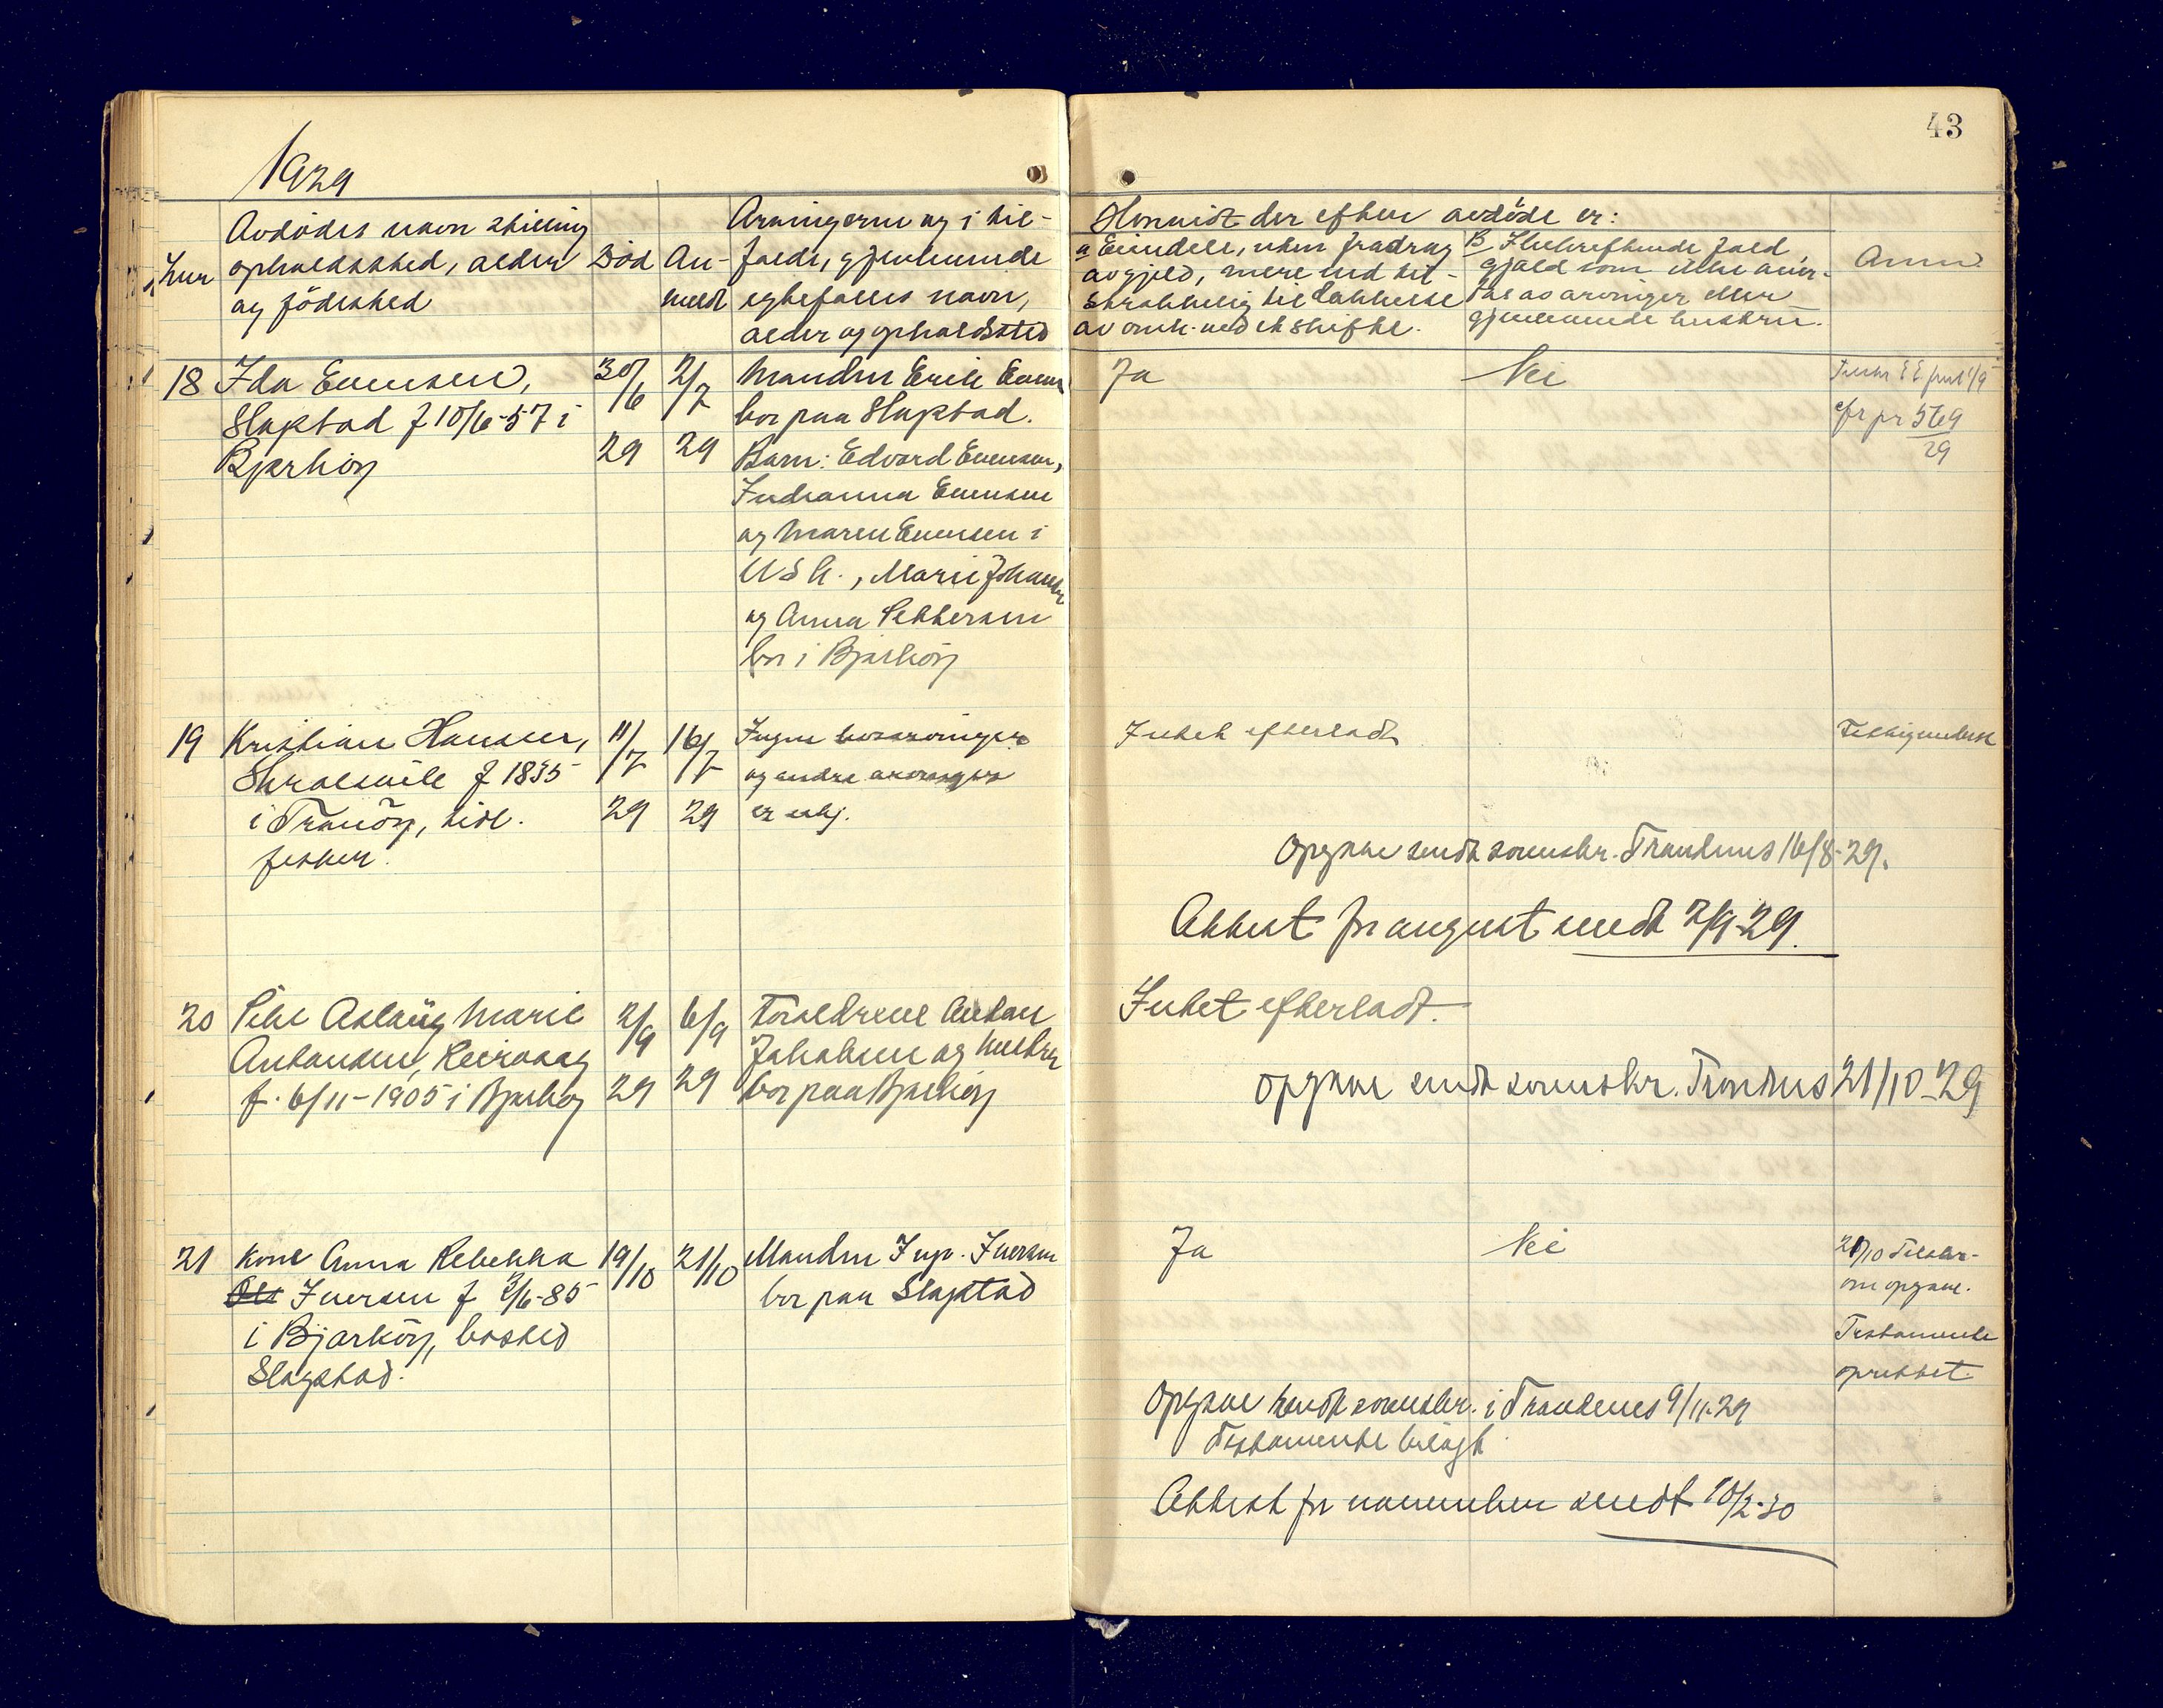 43
1929
Avdödes navn stilling
opholdssted, alder
og födested
Död
An-
meldt
Arvingerne og i til-
fælde, gjenlevende
egtefælles navn,
alder og opholdssted
Hvorvidt der efter avdöde er:
a Eiendele, uten fradrag
av gjæld, mere end til-
strækkelig til dækkelse
av omk. ved et skifte.
B,
gjæld som ikke aner-
av arvinger eller
gjenlevende hustru.
Anm.
18 Ida Evensen,
Slagstad f 10/6-57 i
Bjarköy
30/6
29
2/7
29
Manden Erik Evensen
bor paa Slagstad.
Barn: Edvard Evensen,
Indianna Evensen
og Maren Evensen i
U S A., Marie Johansen
og Anna Pettersen
bor i Bjarköy
Ja
Nei
569
29
19 Kristian Hansen,
f 1835
i Tranöy, tidl.
fisker.
11/7
29
16/7
29
Ingen livsarvinger
og andre arvinger
er ubj.
Intet efterladt
Opgave sendt sorenskr. Trondenes 16/8-29.
Attest for august sendt 2/9-29.
20 Pike Aslaug Marie
Antonsen,
f. 6/11-1905 i Bjarköy
2/9
29
6/9
29
Foreldrene Anton
Jakobsen og hustru
bor paa Bjarköy
Intet efterladt.
Opgave sendt sorenskr. Trondenes 21/10-29
21 Kone Anna Rebekka
Iversen f 3/6-85
i Bjarköy, bosted
Slagstad.
19/10
21/10
Manden Ing. Iversen
bor paa Slagstad
Ja
Nei
21/10 Tilskr.
om opgave.
Testamente
oprettet.
Opgave sendt sorenskr. i Trondenes 9/11-29
Testamente bilagt
Attest for november sendt 10/2-30